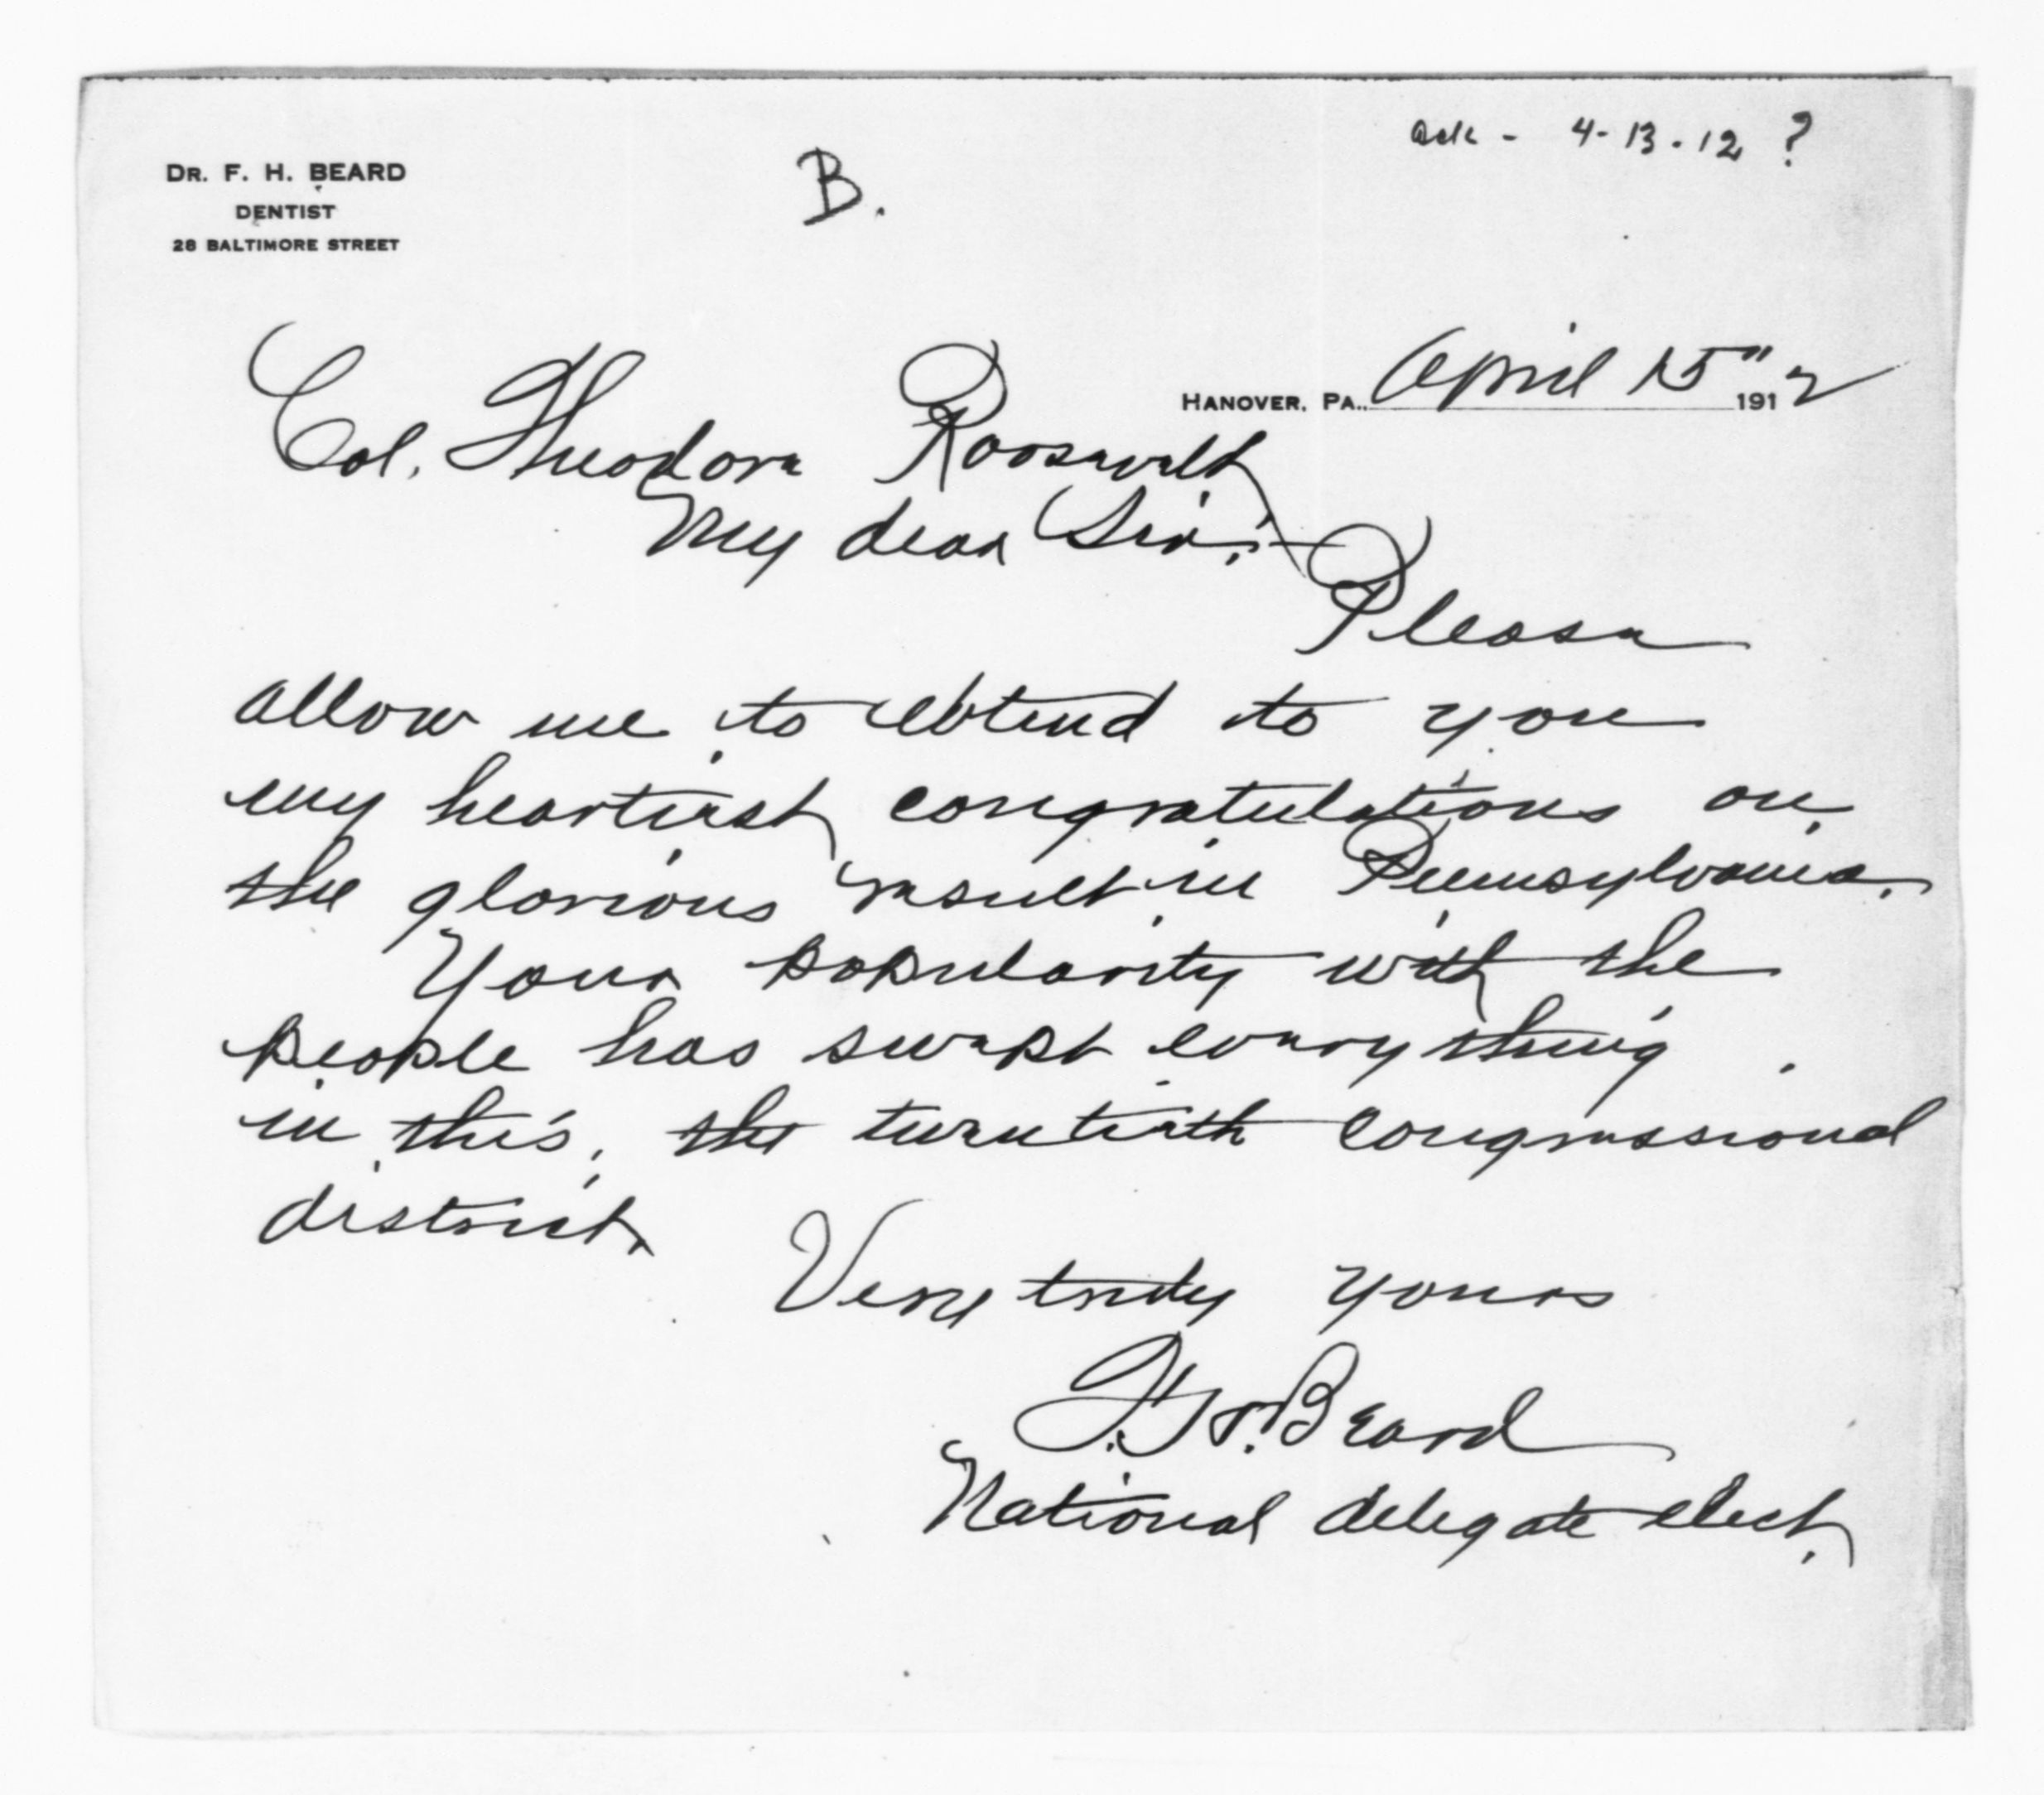 ack - 4-13-12 ?
B.
DR. F. H. BEARD
DENTIST
28 BALTIMORE STREET
HANOVER, PA., April 15" 1912
Col. Theodore Roosevelt
My dear Sir:-
Please
allow me to extend to you
my heartiest congratulations on
the glorious result in Pennsylvania.
Your popularity with the
people has swept everything
in this, the twentieth congressional
district.
Very truly yours
F. H. Beard
National delegate elect.